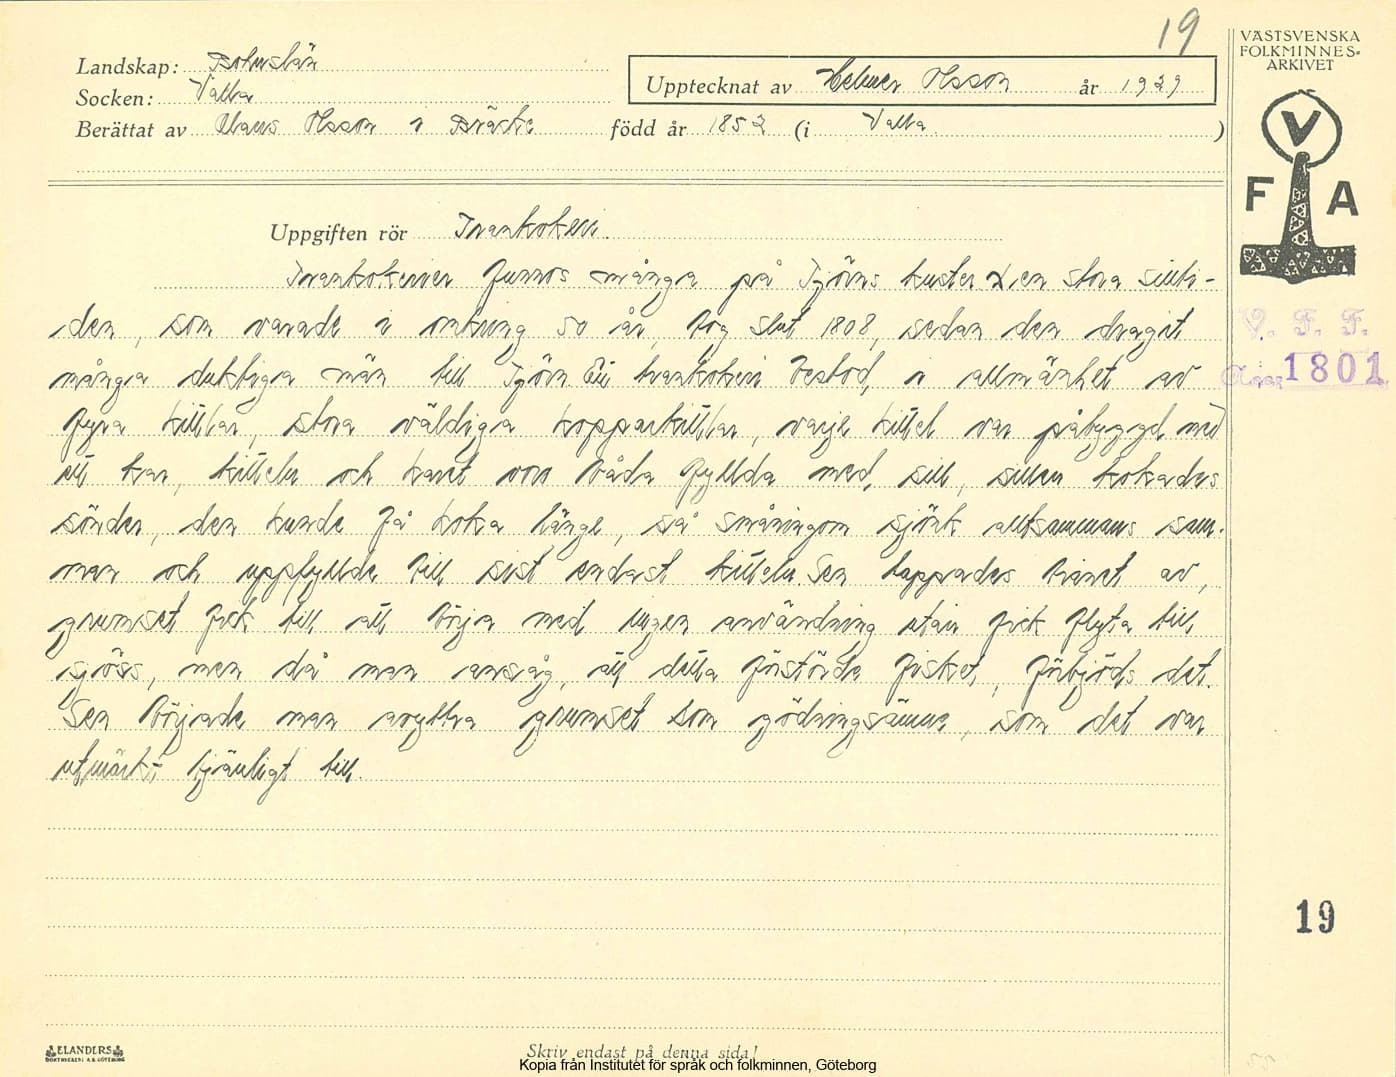 19
VÄSTSVENSKA
FOLKMINNES-
ARKIVET
Landskap: Bohuslän
Socken: Valla
Upptecknat av Helmer Olsson år 1929
Berättat av Claus Olsson i Bräcke född år 1852 (i Valla.)
V
F A
Uppgiften rör Trankokeri.
Trankokerier funnos många på Tjörns kuster den stora sillti-
den, som varade i omkring 50 år, tog slut 1808, sedan den dragit
många duktiga män till Tjörn. Ett trankokeri bestod, i allmänhet av
fyra kittlar, stora väldiga kopparkittlar, varje kittel var påbyggd med
ett kar, kitteln och karet voro båda fyllda med sill, sillen kokades
sönder, den kunde få koka länge, så småningom sjönk alltsammans sam-
man och uppfyllde till sist endast kitteln. Sen tappades tranet av,
grumset fick till att börja med ingen användning utan fick flyta till
sjöss, men då man ansåg, att detta förstörde fisket, förbjöds det.
Sen började man avyttra grumset som gödningsämne, som det var
utmärkt tjänligt till.
V. F. F.
1801
19
ELANDERS
BOKTRYCKERI A.B. GÖTEBORG
Skriv endast på denna sida!
Kopia från Institutet för språk och folkminnen, Göteborg